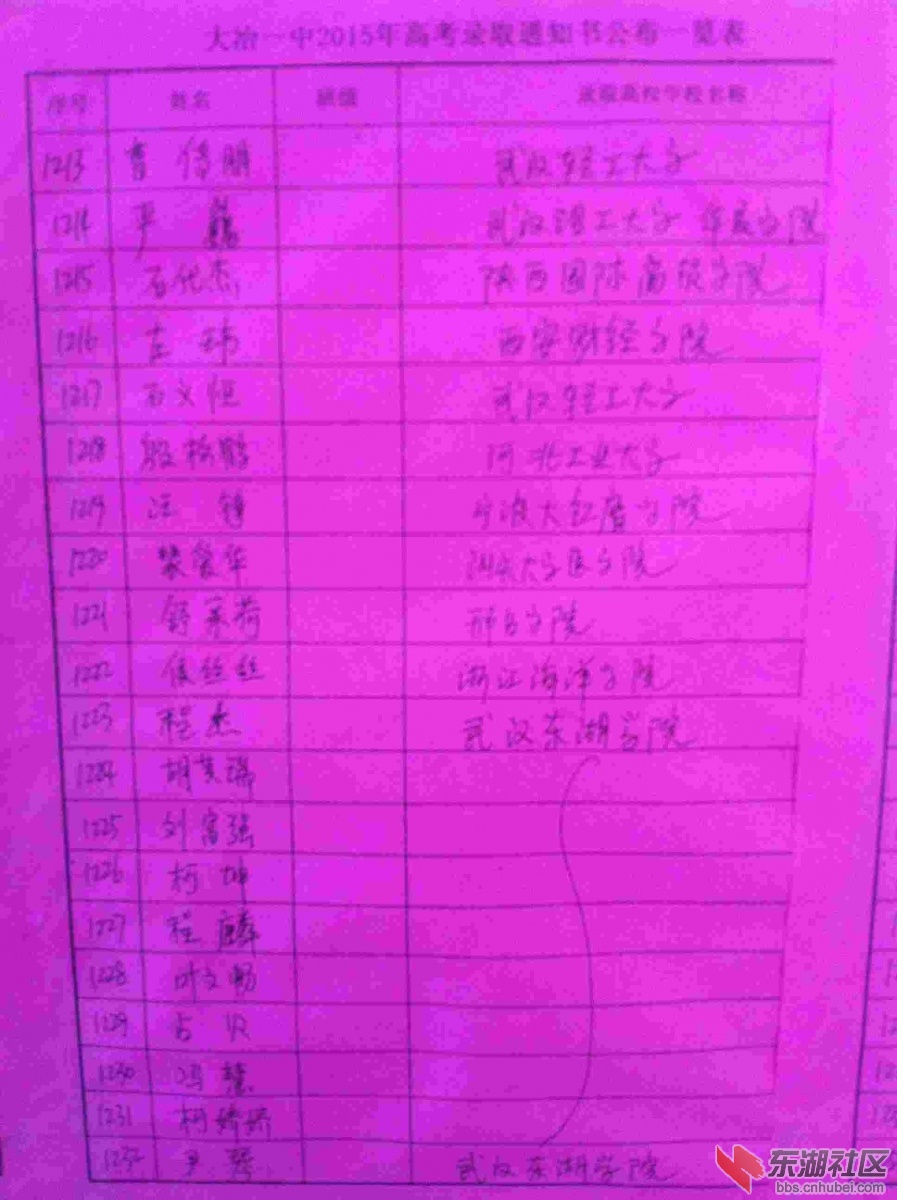 大冶一中2015年高考录取通知书公布一览表
序号 姓名 班级 录取高校学校名称
1213 曹传鹏 武汉轻工大学
1214 尹 武汉理工大学 华夏学院
1215 石化杰 陕西国际商贸学院
1216 吉玮 西安财经学院
1217 石义恒 武汉轻工大学
1218 殷杨鹏 河北工业大学
1219 汪锋 宁波大红鹰学院
1220 樊荣华 大学医学院
1221 舒莱荷 邢台学院
1222 侯丝丝 浙江海洋学院
1223 程杰 武汉东湖学院
1224 胡芙瑞
1225 刘富强
1226 柯坤
1227 程麟
1228 叶文畅
1229 占
1230 冯慧
1231 柯娇娇
1232 尹 武汉东湖学院
东湖社区
bbs.cnhubei.com